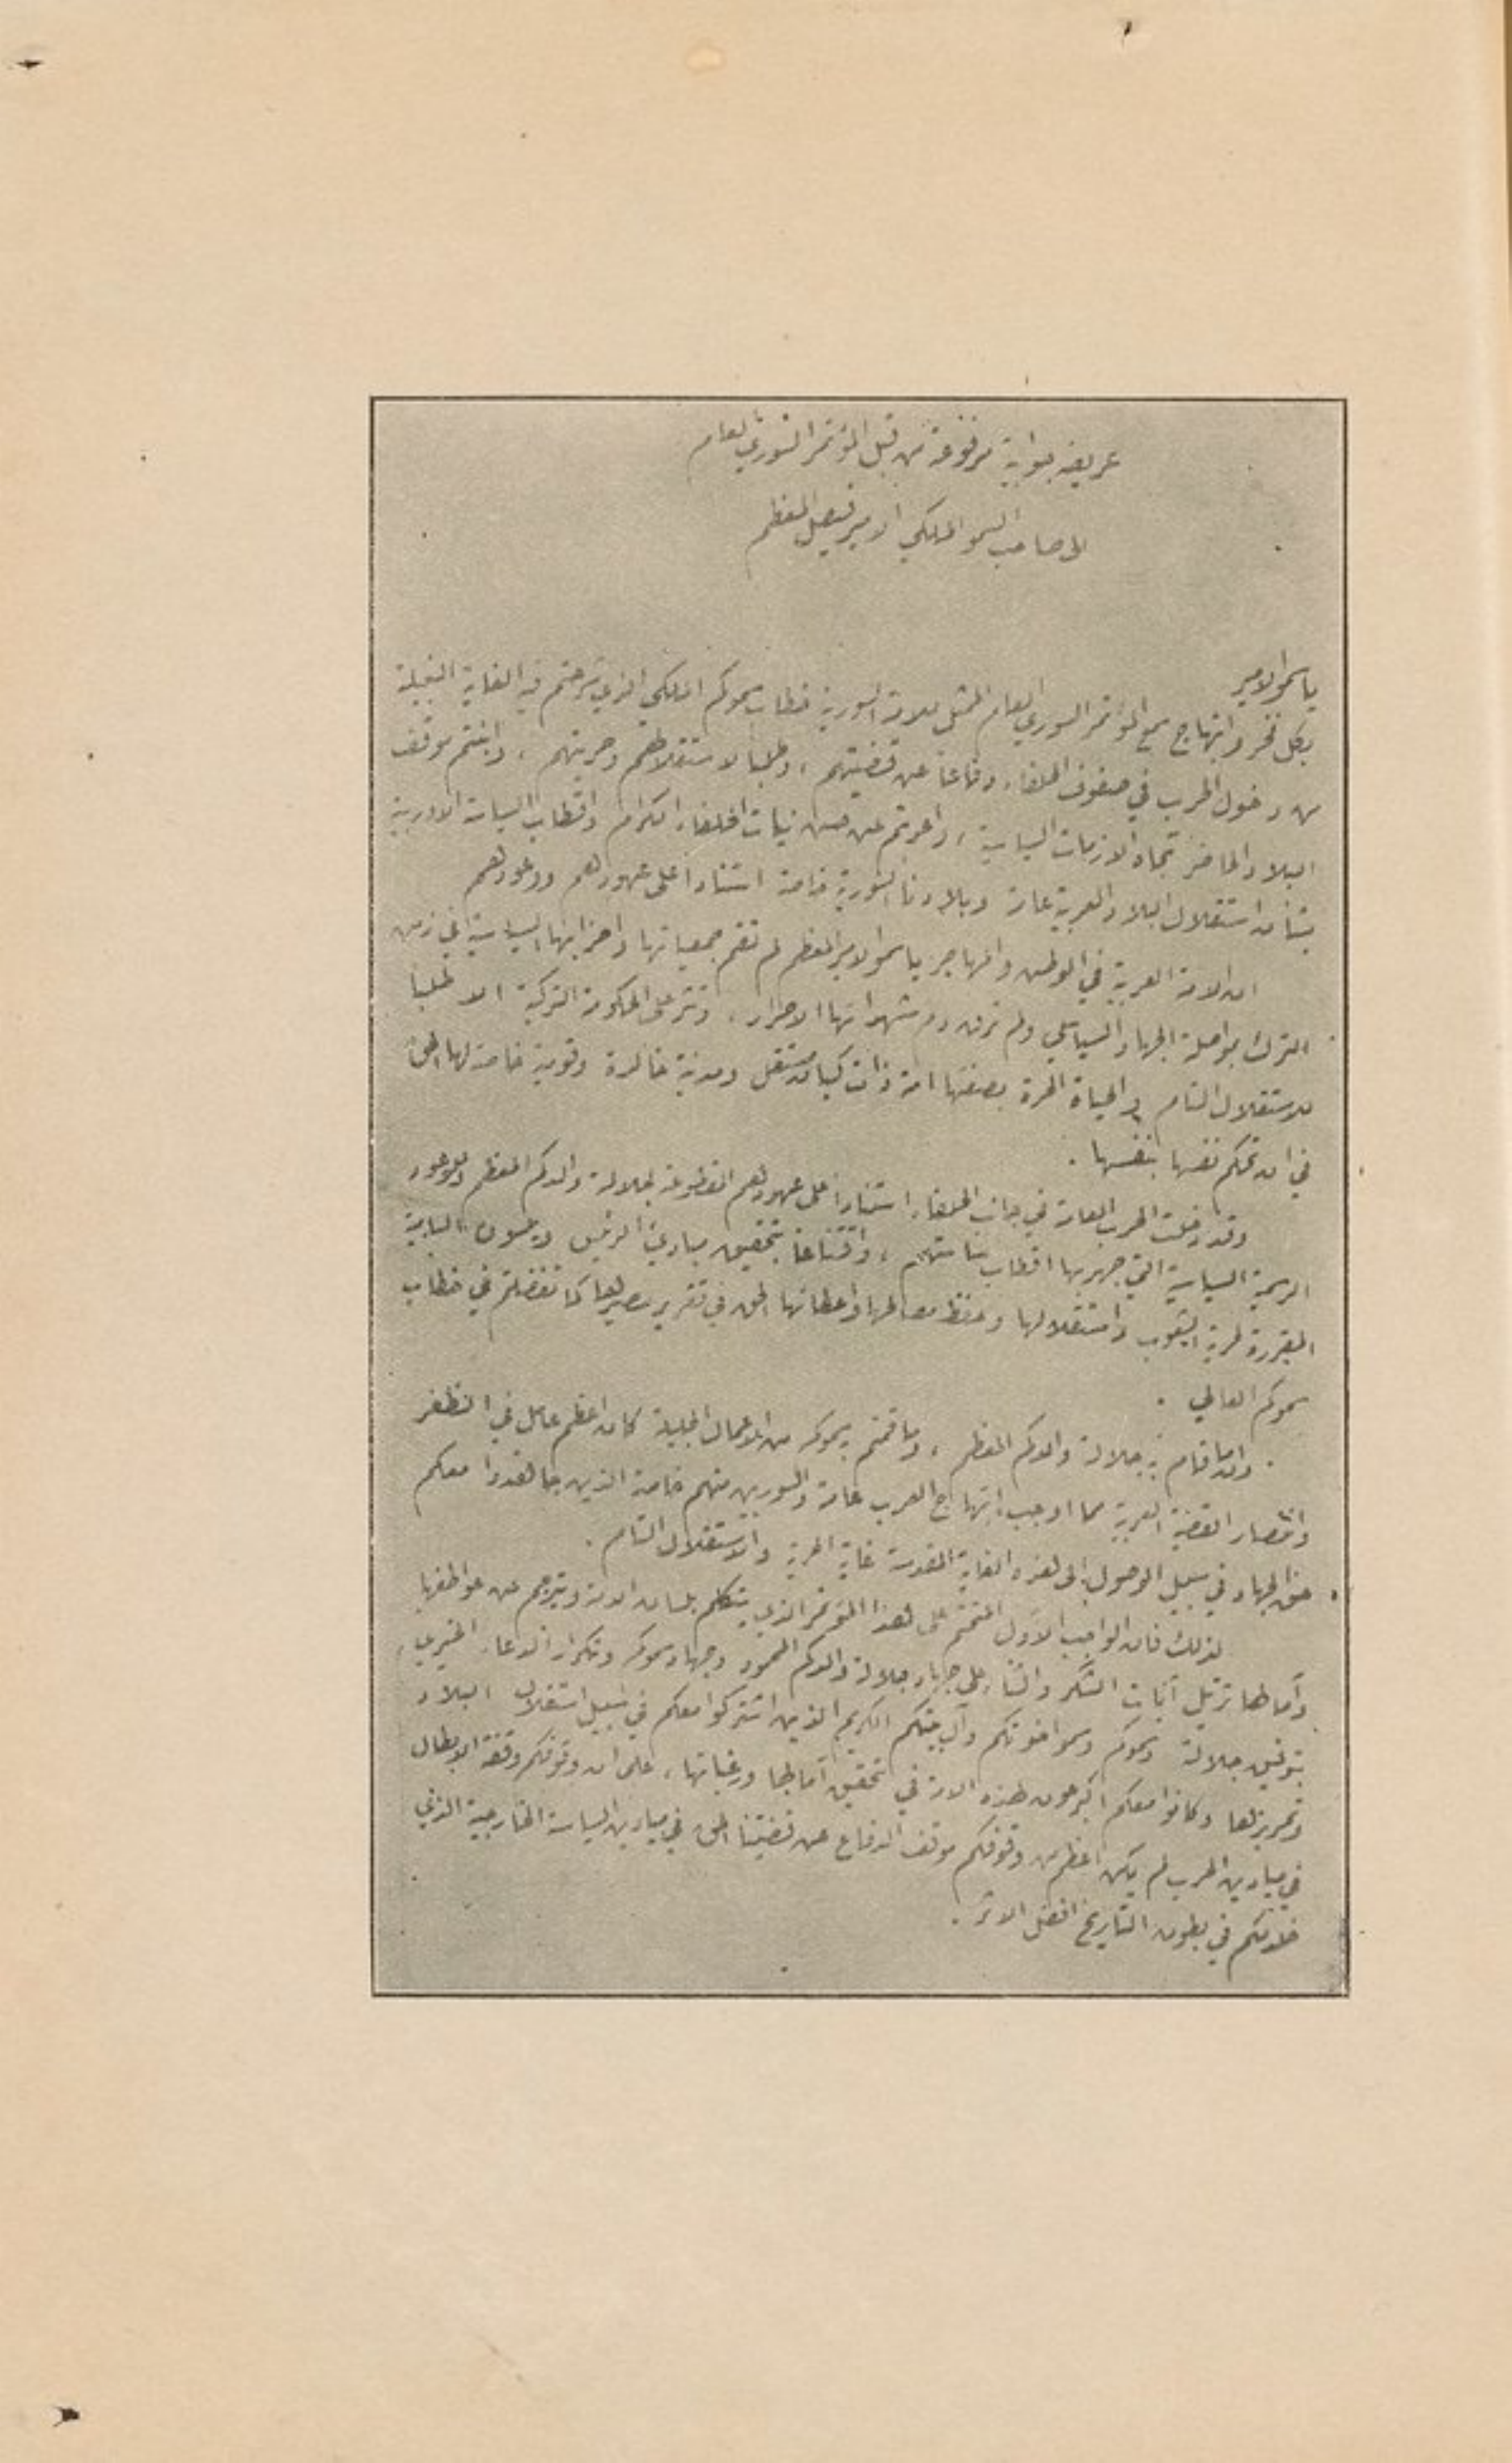 عريضة جوابية مرفوعة من قبل المؤتمر السوري العام
الى صاحب السمو الملكي الامير فيصل المعظم
يا سمو الامير
بكل فخر وابتهاج سمع المؤتمر السوري العام الممثل للامة السورية خطاب سموكم الملكي الذي شرحتم فيه الغاية النبيلة
من دخول الحرب في صفوف الحلفاء دفاعاً عن قضيتهم ، وطلباً لاستقلالهم وحريتهم ، وابنتم موقف
البلاد الحاضر تجاه الازمات السياسية ، واعربتم عن حسن نيات الحلفاء الكرام واقطاب السياسة الاوربية
بشأن استقلال البلاد العربية عامة وبلادنا السورية خاصة استناداً على عهودهم ووعودهم
ان الامة العربية في الوطن والمهاجر يا سمو الامير المعظم لم تقم جمعياتها واحزابها السياسية في زمن
الترك بمواصلة الجهاد السياسي ولم ترق دم شهدائها الاحرار ، وتثر على الحكومة التركية الا طلباً
للاستقلال التام والحياة الحرة بصفتها امة ذات كيان مستقل ومدنية خالدة وقومية خاصة لها الحق
في ان تحكم نفسها بنفسها .
وقد دخلت الحرب العامة في جانب الحلفاء استناداً على عهودهم المقطوعة لجلالة والدكم المعظم والوعود
الرسمية السياسية التي جهر بها اقطاب سياستهم ، واقتناعاً بتحقيق مبادئ الرئيس ويلسون السامية
المقررة لحرية الشعوب واستقلالها وحفظ مصالحها واعطائها الحق في تقرير مصيرها كما تفضلتم في خطاب
سموكم العالي .
وان ما قام به جلالة والدكم المعظم ، وما قمتم به سموكم من الاعمال الجليلة كان اعظم عامل في الظفر
وانتصار القضية العربية مما اوجب ابتهاج العرب عامة والسوريين منهم خاصة الذين جاهدوا معكم
حق الجهاد في سبيل الوصول الى هذه الغاية المقدسة غاية الحرية والاستقلال التام .
لذلك فان الواجب الاول المتحتم على هذا المؤتمر الذي يتكلم بلسان الامة ويترجم عن عواطفها
وآمالها ترتيل آيات الشكر والثناء على جهاد جلالة والدكم المحمود وجهاد سموكم وتكرار الدعاء الخيري
بتوفيق جلالته وسموكم وسمو اخوتكم وآل بيتكم الكريم الذين اشتركوا معكم في سبيل استقلال البلاد
وتحريرها وكانوا معكم اكبر عون لهذه الامة في تحقيق آمالها ورغباتها ، على ان وقوفكم وقفة الابطال
في ميادين الحرب لم يكن اعظم من وقوفكم موقف الدفاع عن قضيتنا الحق في ميادين السياسة الخارجية الذي
خلدكم في بطون التاريخ افضل الاثر .